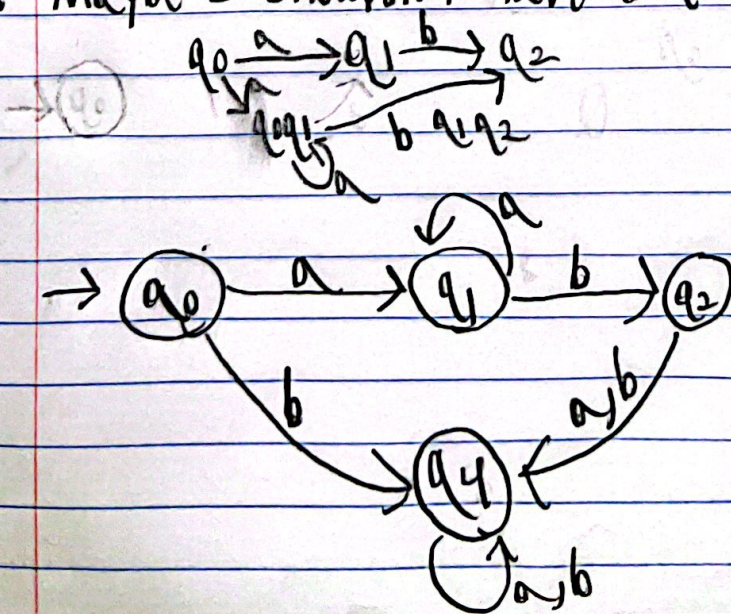 q0 a q1 b q2
a
q0q1 b q1q2
a
a
q0 a q1 b q2
b a,b
q4
a,b